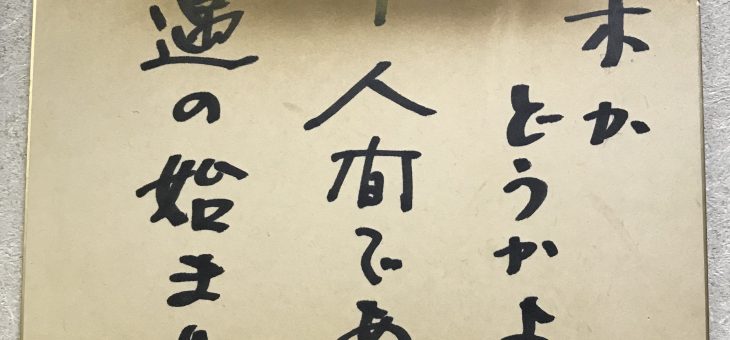 か
どうかよ
人間であ
遇の始まり